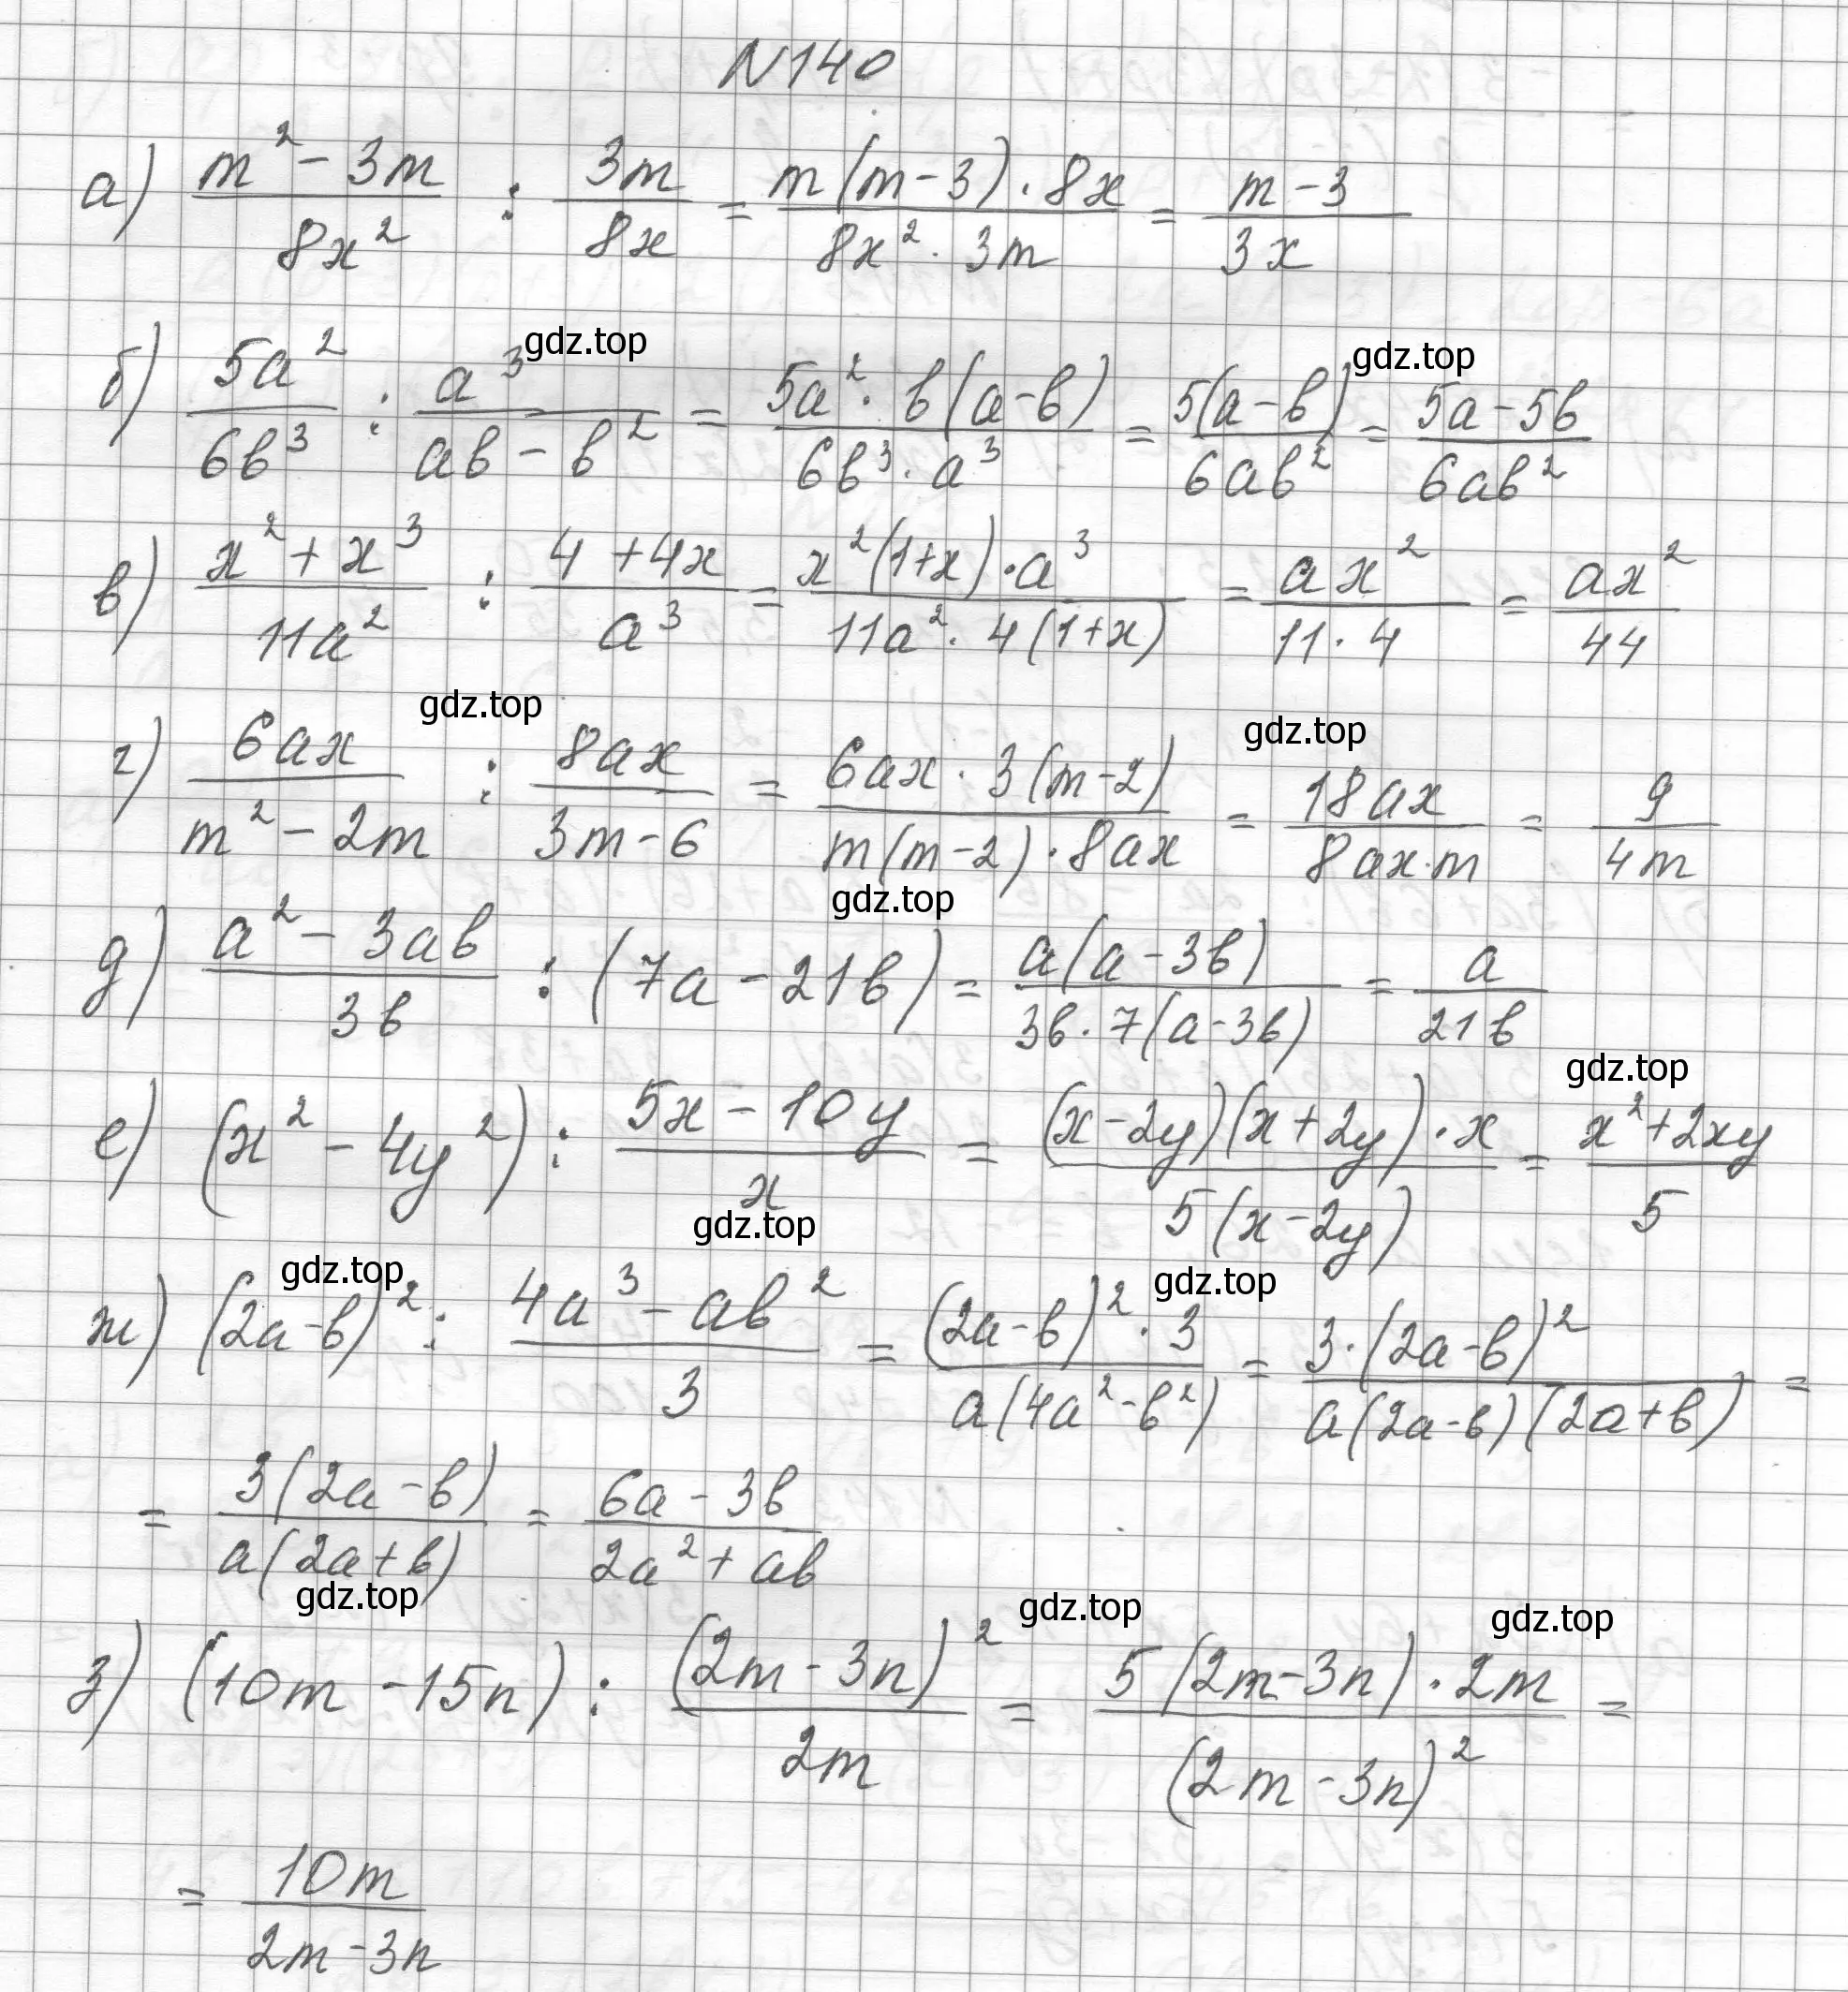 N140
а) (m² - 3m)/(8x²) : (3m)/(8x) = (m(m-3)·8x)/(8x²·3m) = (m-3)/(3x)
gdz.top gdz.top
б) (5a²)/(6b³) : (a³)/(ab - b²) = (5a²·b(a-b))/(6b³·a³) = (5(a-b))/(6ab²) = (5a-5b)/(6ab²)
в) (x² + x³)/(11a²) : (4+4x)/(a³) = (x²(1+x)·a³)/(11a²·4(1+x)) = (ax²)/(11·4) = (ax²)/(44)
gdz.top gdz.top
г) (6ax)/(m² - 2m) : (8ax)/(3m-6) = (6ax·3(m-2))/(m(m-2)·8ax) = (18ax)/(8ax·m) = (9)/(4m)
gdz.top
д) (a² - 3ab)/(3b) : (7a - 21b) = (a(a-3b))/(3b·7(a-3b)) = (a)/(21b)
gdz.top
е) (x² - 4y²) : (5x - 10y)/(x) = ((x-2y)(x+2y)·x)/(5(x-2y)) = (x²+2xy)/(5)
gdz.top
gdz.top gdz.top
ж) (2a-b)² : (4a³ - ab²)/(3) = ((2a-b)²·3)/(a(4a²-b²)) = (3·(2a-b)²)/(a(2a-b)(2a+b)) =
= (3(2a-b))/(a(2a+b)) = (6a-3b)/(2a²+ab)
gdz.top gdz.top gdz.top
з) (10m - 15n) : ((2m-3n)²)/(2m) = (5(2m-3n)·2m)/((2m-3n)²) =
= (10m)/(2m-3n)